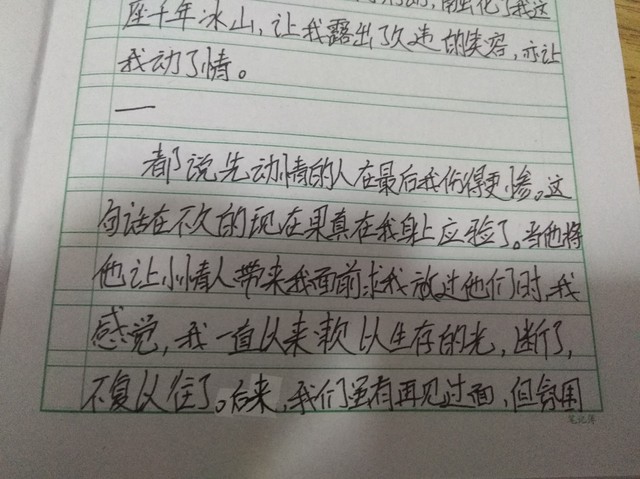 化了我这
座千年冰山,让我露出了久违的笑容,亦让
我动了情。
一
都了说先动情的人在最后我伤得更惨。这
句话在不久的现在果真在我身上应验了。当他将
他让小情人带来我面前求我放过他们时,我
感觉,我一直以来赖以生存的光,断了,
不复以往了。后来,我们虽有再见过面,但氛围
笔记簿